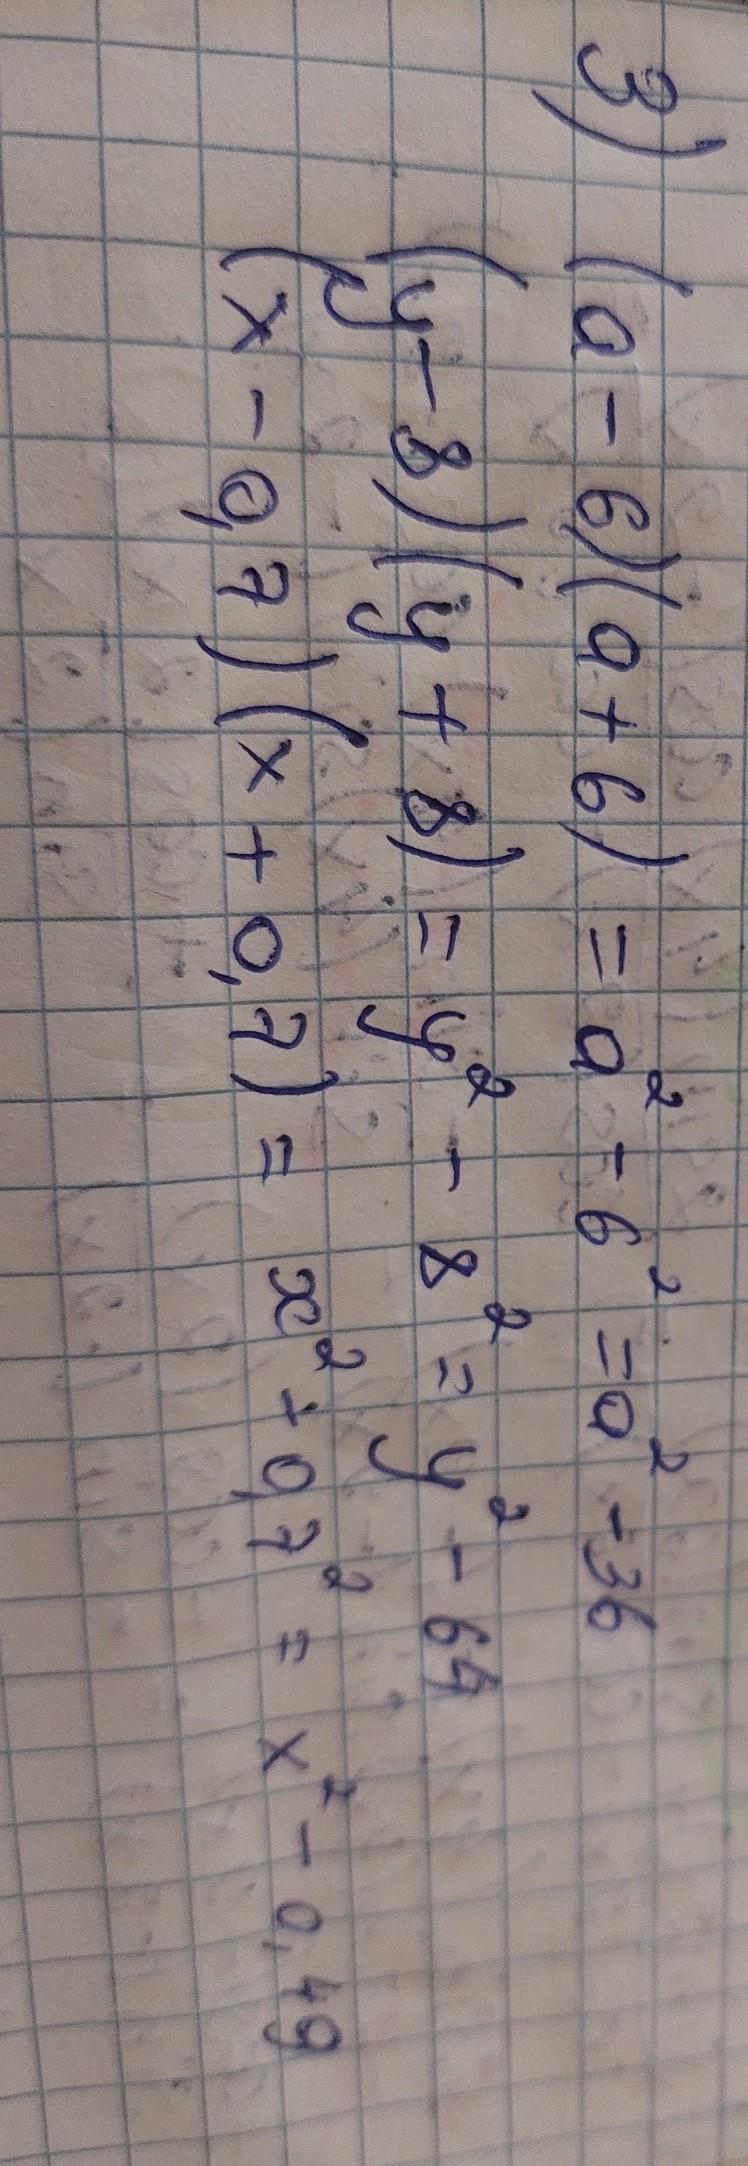 3) (a - 6)(a + 6) = a² - 6² = a² - 36
(y - 8)(y + 8) = y² - 8² = y² - 64
(x - 0,7)(x + 0,7) = x² - 0,7² = x² - 0,49